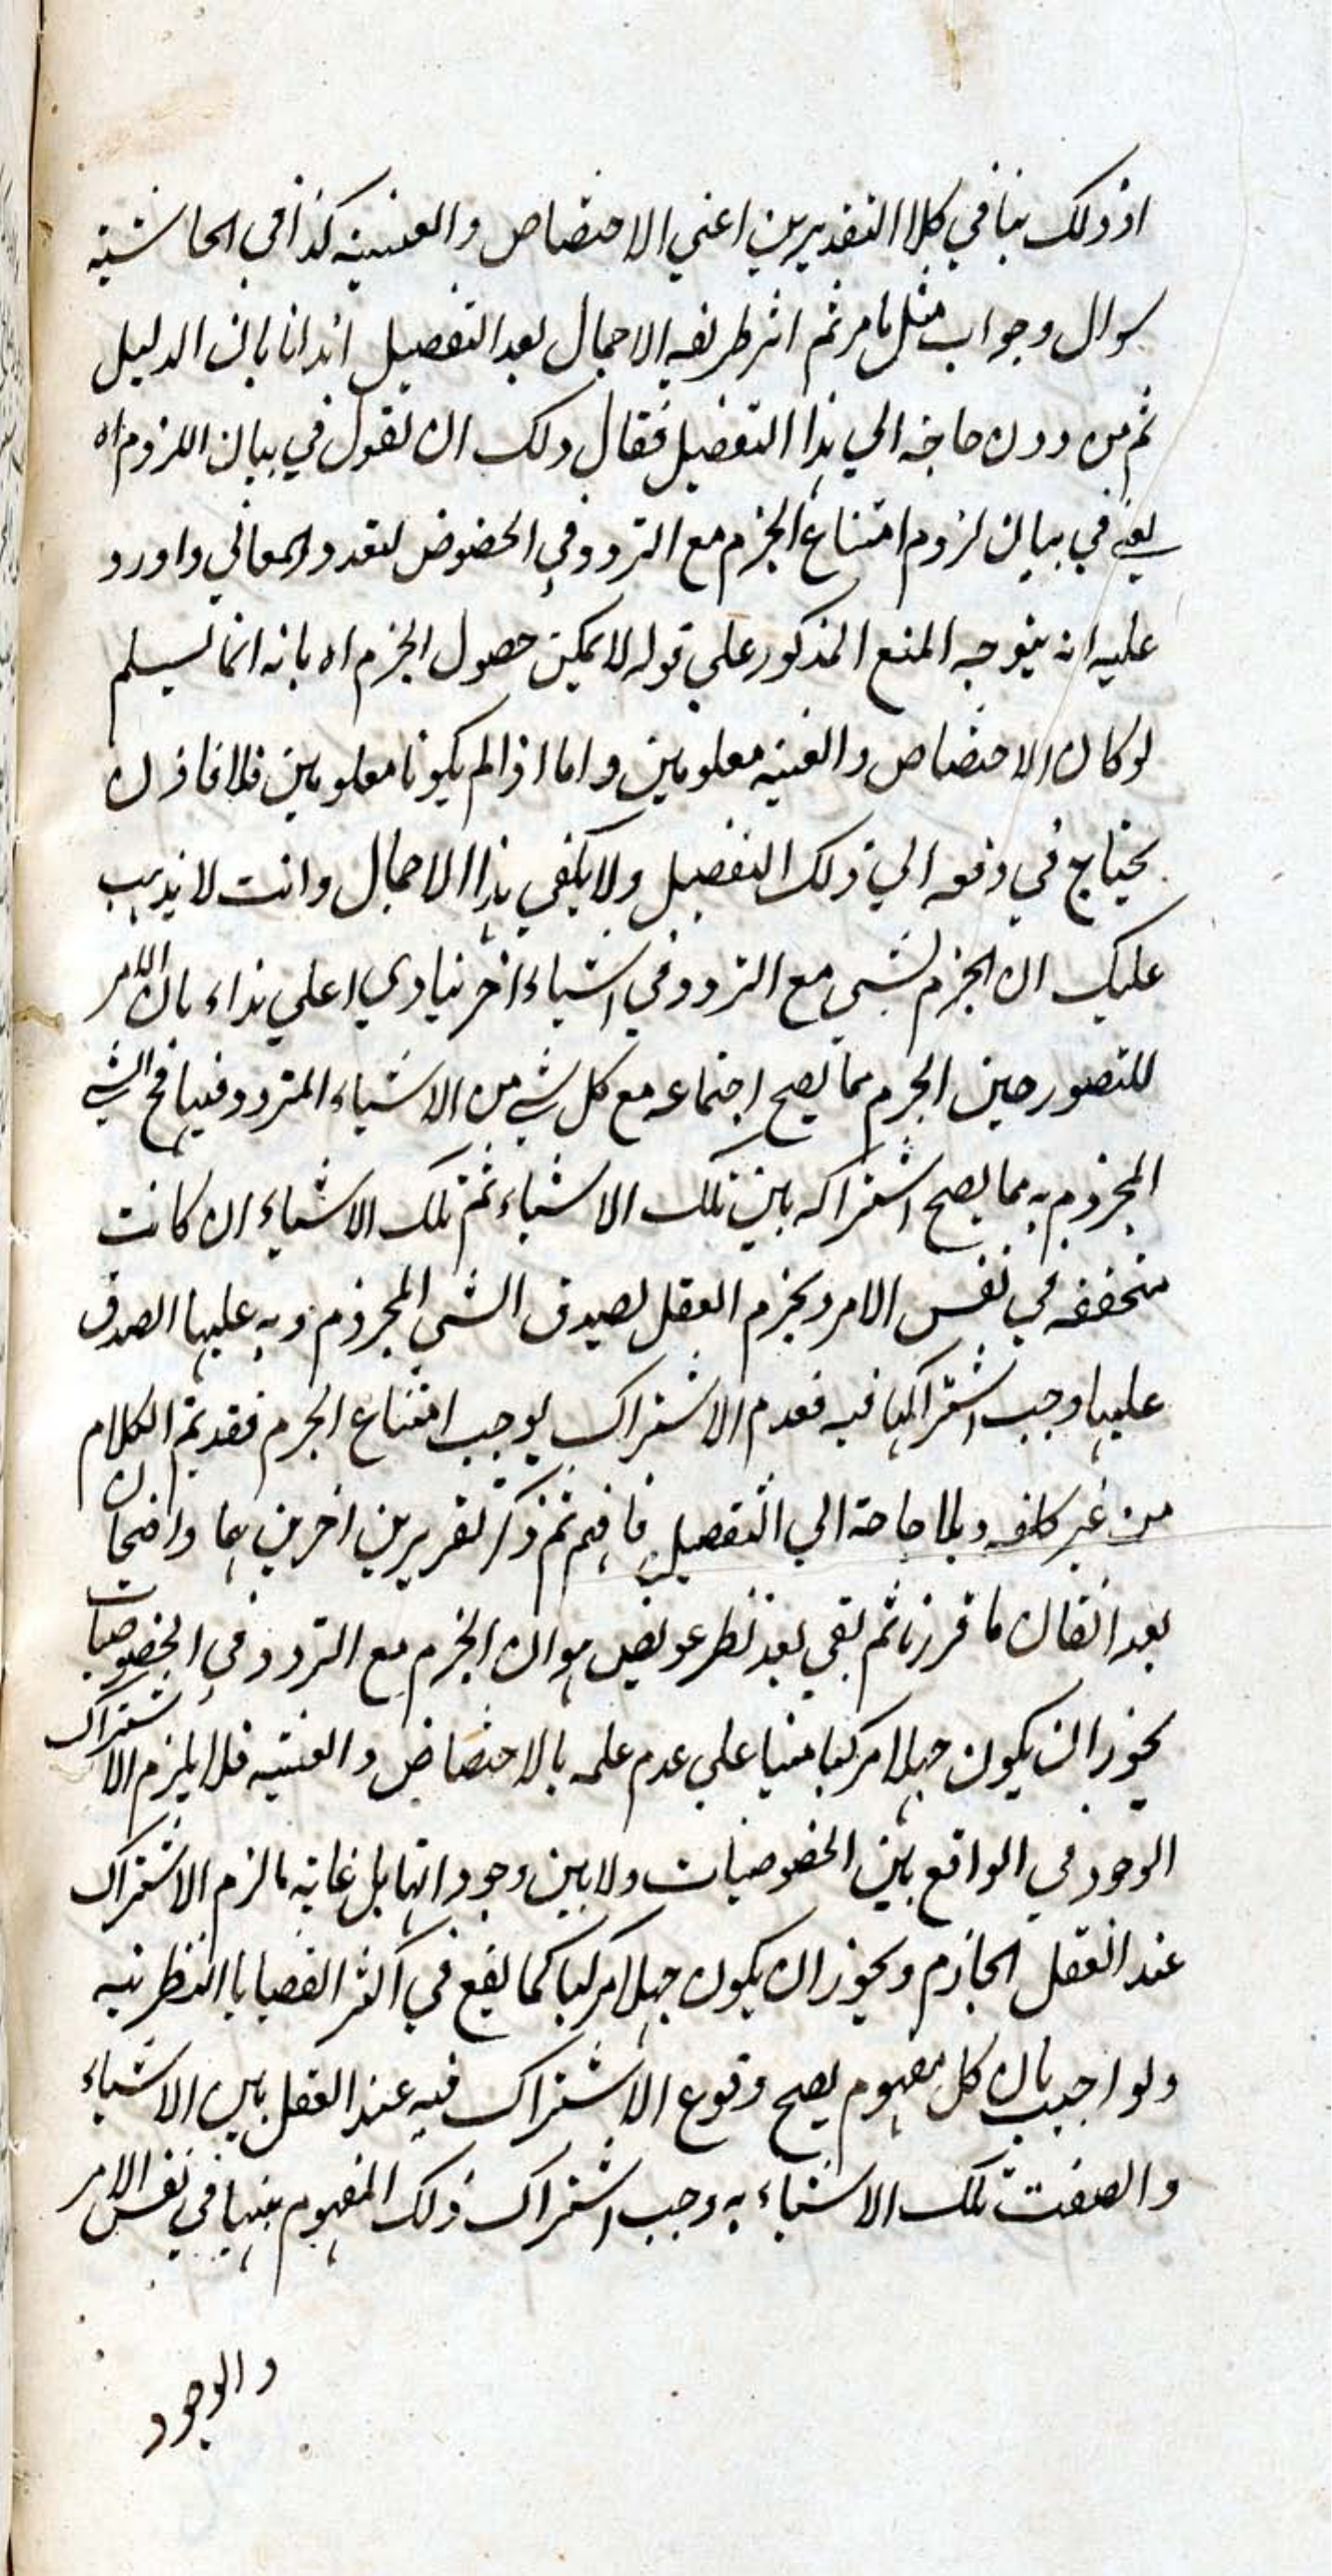 اذ ذلك ينافي كلا التقديرين اعني الاختصاص والعينية كذا في الحاشية
سوال وجواب مثل ما مر ثم اشر طريقه الاجمال بعد التفصيل ايذانا بان الدليل
ثم من دون حاجة الي هذا التفصيل فقال ولك ان تقول في بيان اللزوم اه
يعني في بيان لزوم امتناع الجزم مع التردد في الخصوص لتعدد المعاني واورد
عليه انه يتوجه المنع المذكور علي قوله لا يمكن حصول الجزم اه بانه انما يسلم
لو كان الاختصاص والعينيه معلومين واما اذا لم يكونا معلومين فلا فاذن
يحتاج في دفعه الي ذلك التفصيل ولا يكفي هذا الاجمال وانت لا يذهب
عليك ان الجزم بشي مع التردد في اشياء اخر ينادي اعلي نداء بان الامر
للتصور حين الجزم مما يصح اجتماعه مع كل شي من الاشياء المتردد فيها فح الشي
المجزوم به مما يصح اشتراكه بين تلك الاشياء ثم تلك الاشياء ان كانت
متحققه في نفس الامر ويجزم العقل بصدق الشي المجزوم وبه عليها الصدق
عليها وجب اشتراكها فيه فعدم الاشتراك يوجب امتناع الجزم فقد تم الكلام
من غير كلفه وبلا حاجة الي التفصيل فافهم ثم ذكر تقريرين اخرين هما واضحان
بعد اتقان ما قررنا ثم بقي بعد نظر عويص هو ان الجزم مع التردد في الخصوصيات
يجوز ان يكون جهلا مركبا مبنيا علي عدم علمه بالاختصاص والعينيه فلا يلزم الاشتراك
الوجود في الواقع بين الخصوصيات ولا بين وجوداتها بل غاية ما لزم الاشتراك
عند العقل الجازم ويجوز ان يكون جهلا مركبا كما يقع في اكثر القضايا النظريه
ولو اجيب بان كل مفهوم يصح وقوع الاشتراك فيه عند العقل بين الاشياء
واتصفت تلك الاشياء به وجب اشتراك ذلك المفهوم بينها في نفس الامر
والوجود